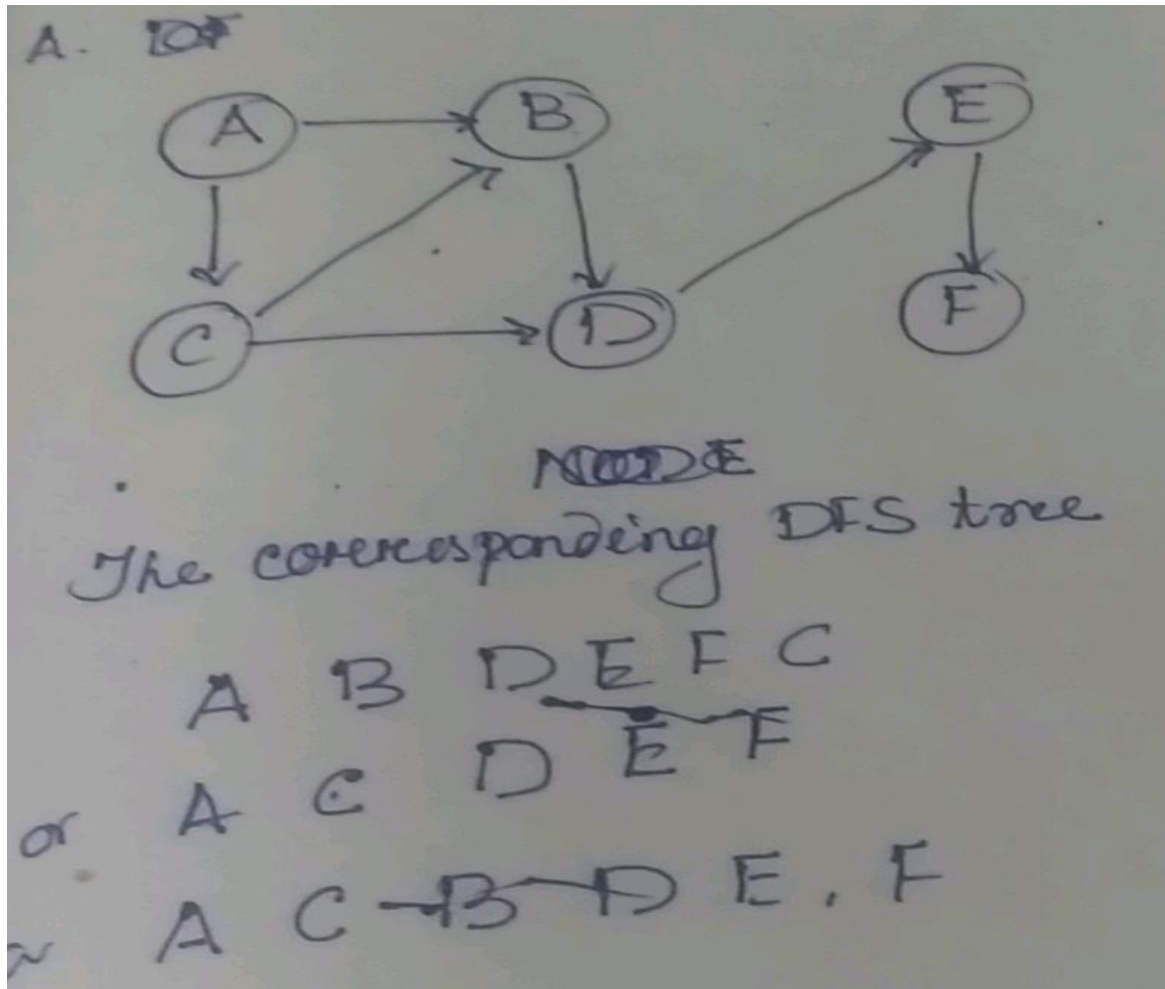 A. DF
A B E
C D F
NODE
The corresponding DFS tree
A B D E F C
or A C D E F
A C B D E , F